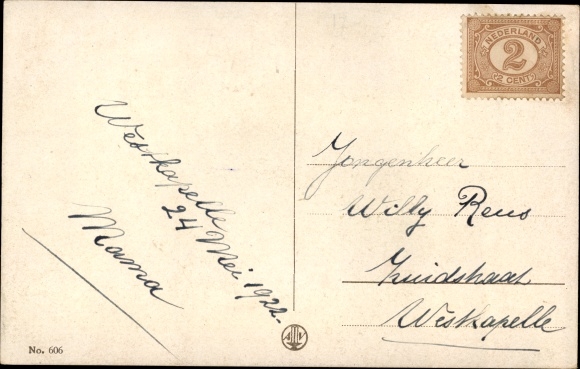 Westkapelle
24 Mei 1922.
Mama
NEDERLAND
2
2 CENT
Jongenheer
Willy Reus
Zuidstraat
Westkapelle
A N
No. 606